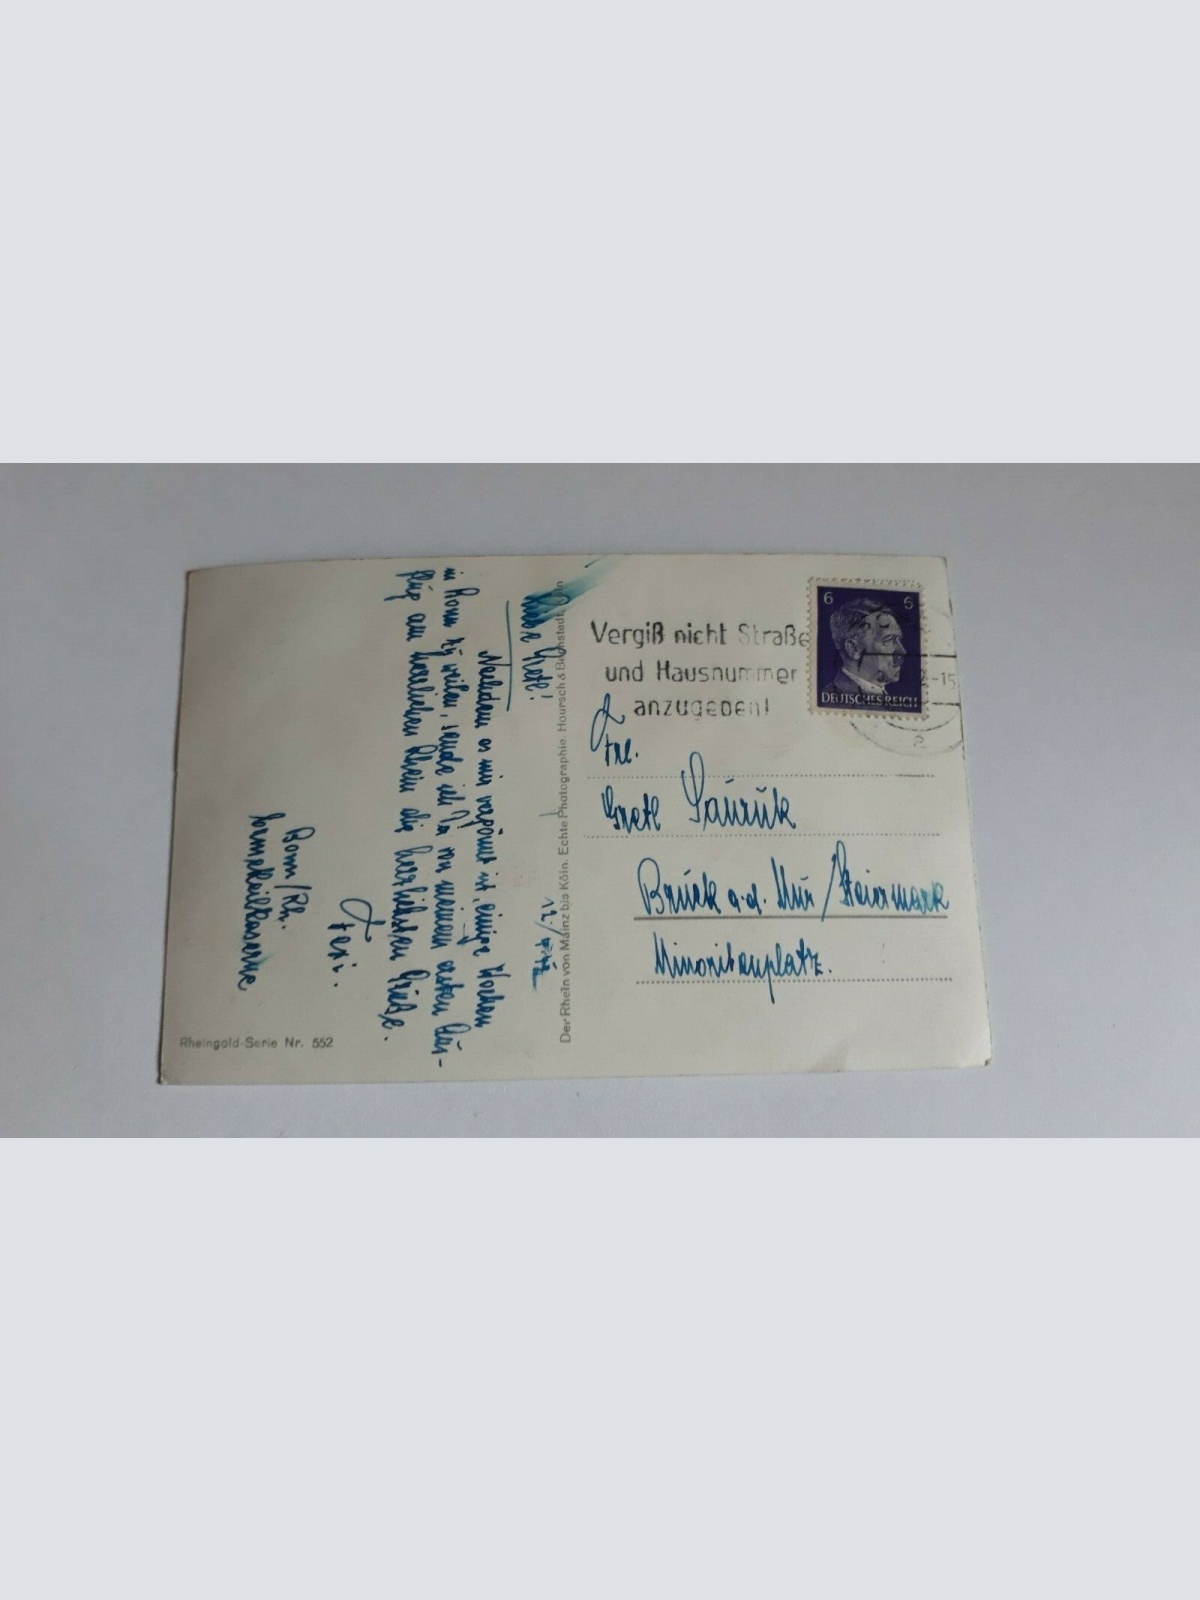 Liebe Gretl!
12./
Nachdem es mir vergönnt ist, einige Wochen
in Bonn zu weilen, sende ich Dir von meinem ersten Aus-
flug am herrlichen Rhein die herzlichsten Grüße.
Bonn/Rh.
Rheingold-Serie Nr. 552
Der Rhein von Mainz bis Köln. Echte Photographie. Hoursch & Bechstedt, Köln
Vergiß nicht Straße
und Hausnummer
anzugeben!
6 6
DEUTSCHES REICH
-15
a
Frl.
Gretl
Bruck a.d. Mur/Steiermark
Minoritenplatz.